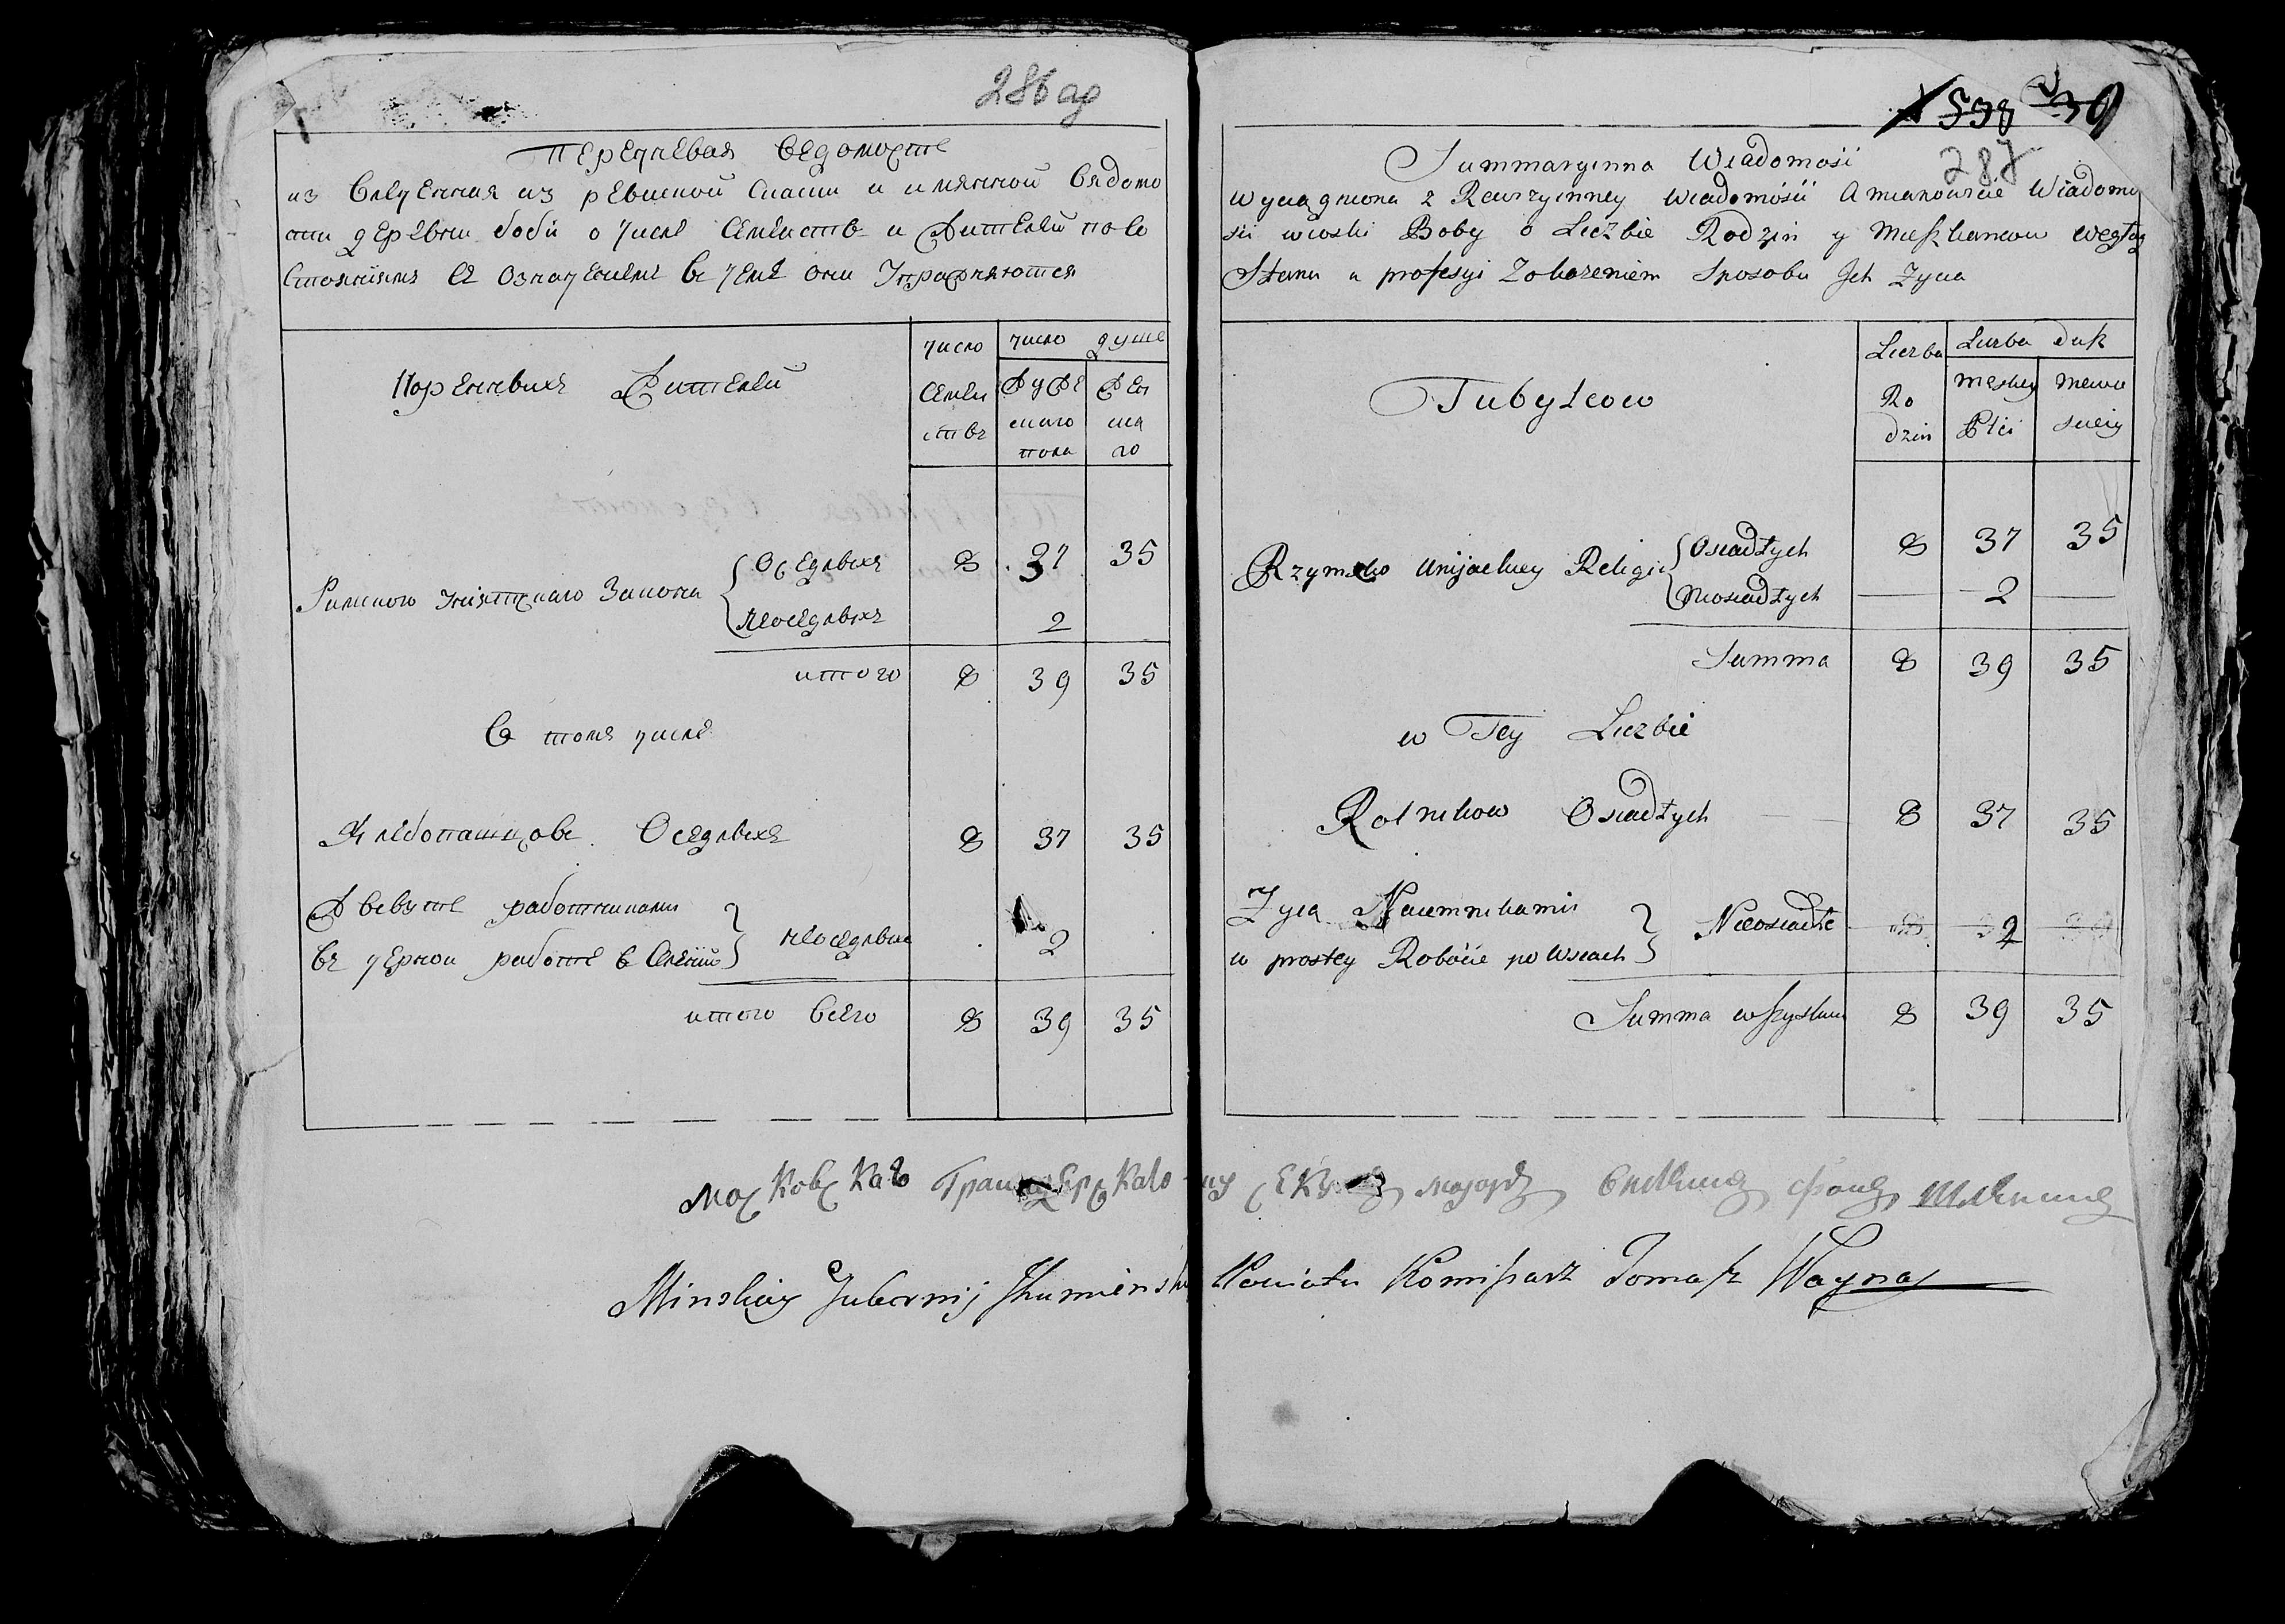 286 об
Перечневая ведомость
из влеченная из ревиской скаски и имянной вядомо
сти деревни бобы о числе семействъ и жителей по со
стоянiямъ съ означениемъ въ чемъ они упражняются
Коренныхъ Жителей
число
семей
ствъ
число душъ
муже
скаго
пола
жен
ска
го
Римского унiятскаго закона
оседлыхъ 8 37 35
неоседлыхъ 2
итого 8 39 35
в томъ числе
Хлебопашцовъ Оседлыхъ 8 37 35
Живутъ работниками
въ черной работе в селенiи
неоседлыхъ 2
итого всего 8 39 35
287
Summaryinna Wiadomość
wyciągniona z Rewizyinney wiadomośći a mianowicie Wiadomo
śći wioski Boby o Liczbie Rodzin y Mieszkancow węgłąg
Stanu a profesyi z okazeniem sposobu Jch Zycia
Tubylcow
Liczba
Ro
dzin
Liczba dusz
męskiey
Płci
niewie
sciey
Rzymsko Unijackiey Religii
Osiadłych 8 37 35
Nieosiadłych 2
Summa 8 39 35
w Tey Liczbie
Rolnikow Osiadłych 8 37 35
Zyią Naiemnikami
w prostey Roboćie po wsiach
Nieosiadłe 2
Summa wszystkiego 8 39 35
Московскаго
Minskiey Gubernij Jhumiensk Powiatu Komissarz Tomasz Wayna